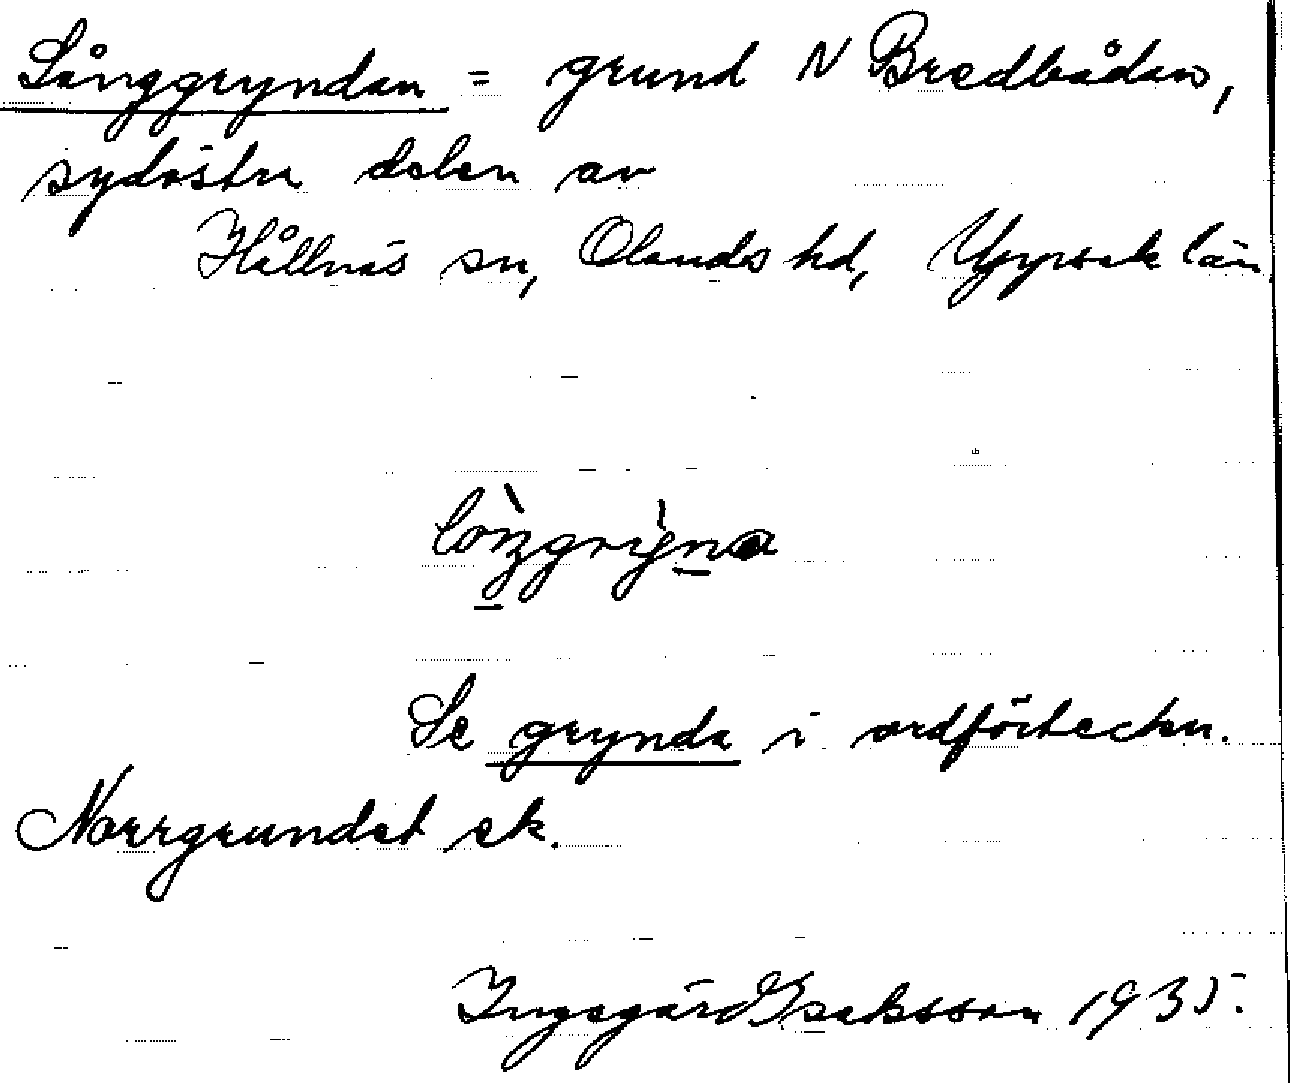 Långgryndan = grund N Bredbådan,
sydöstra delen av
Hållnäs sn, Olands hd, Uppsala län
Se grynda i ordförteckn.
Norrgrundet ek.
Ingegärd Isaksson 1935.